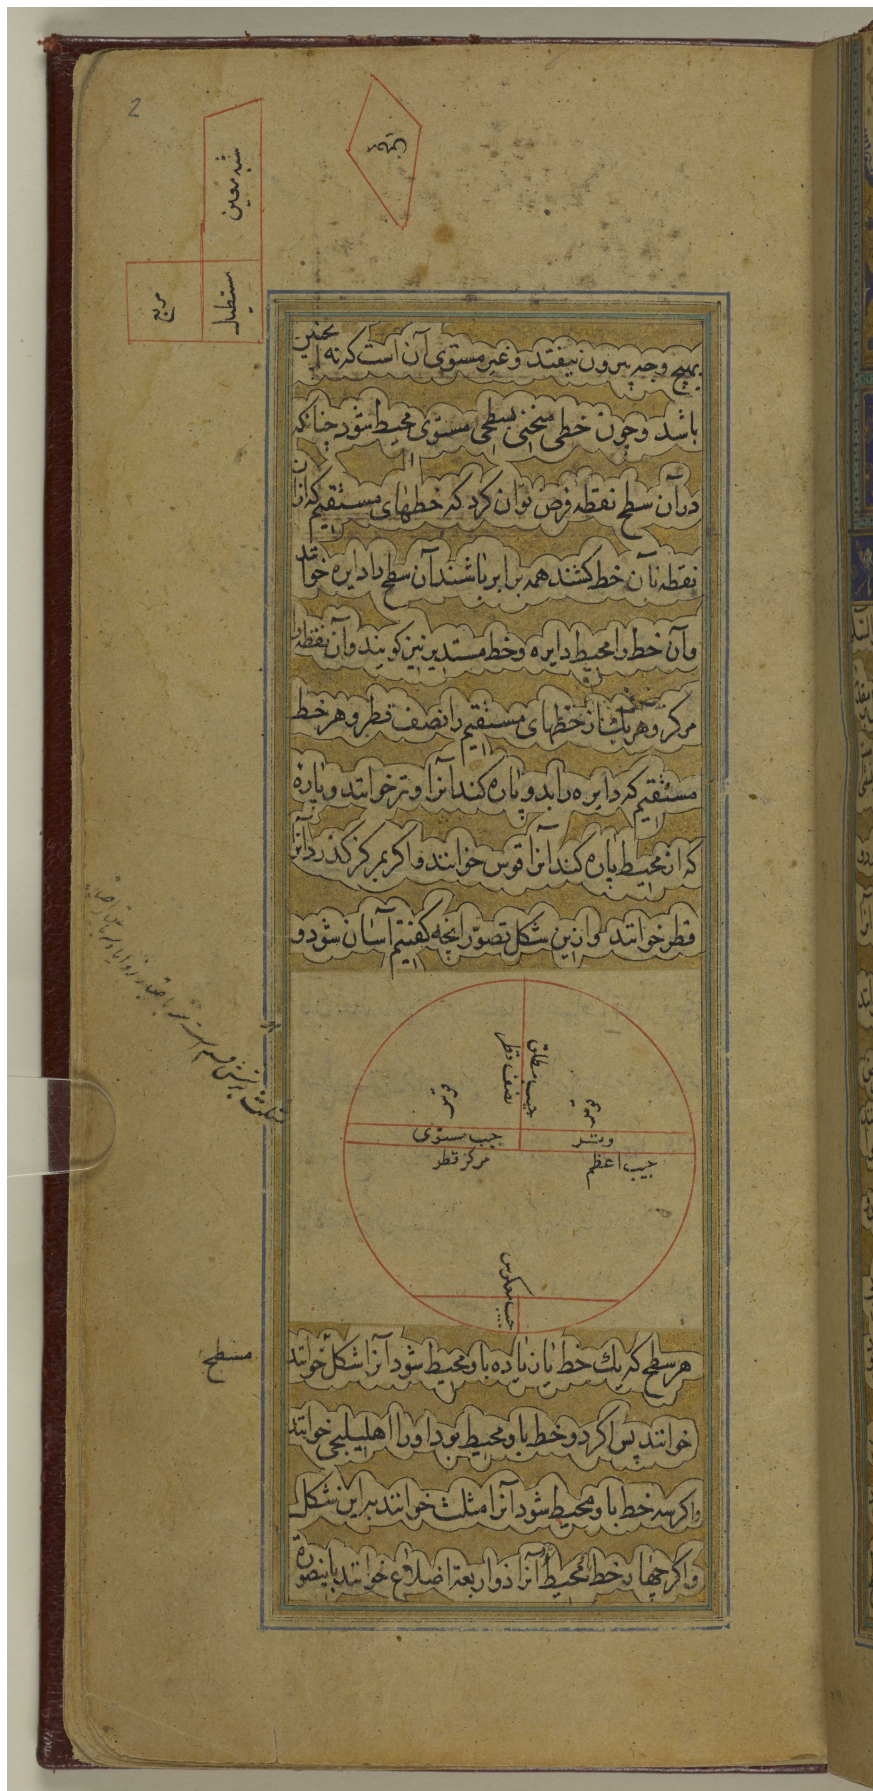 2
شبه معین
مستطیل
مربع
بهیچ وجه بیرون نیفتد و غیر مستوی آن است که نه اینچنین
باشد و چون خطی منحنی بسطحی مستوی محیط شود چنانکه
در آن سطح نقطه فرض توان کرد که خطهای مستقیم که از آن
نقطه بآن خط کشند همه برابر باشند آن سطح را دایره خوانند
و آن خط را محیط دایره و خط مستدیر نیز کویند و آن نقطه را
مرکز و هر یک از خطهای مستقیم را نصف قطر و هر خط
مستقیم که دایره را بدو پاره کند آنرا وتر خوانند و پاره
که از محیط پاره کند آنرا قوس خوانند و اکر بمرکز کذرد آنرا
قطر خوانند و ازین شکل تصور آنچه کفتیم آسان شود و
جیب مطلق
نصف قطر
قوس
قوس
جیب مستوی
وتر
مرکز قطر
جیب اعظم
جیب معکوس
مسطح
هر سطح که یک خط یا زیاده باو محیط شود آنرا شکل خوانند
خوانند پس اکر دو خط باو محیط بود او را اهلیلجی خوانند
و اکر سه خط باو محیط شود آنرا مثلث خوانند بر این شکل
و اکر چهار خط محیط بود آنرا ذو اربعة اضلاع خوانند باینصورة